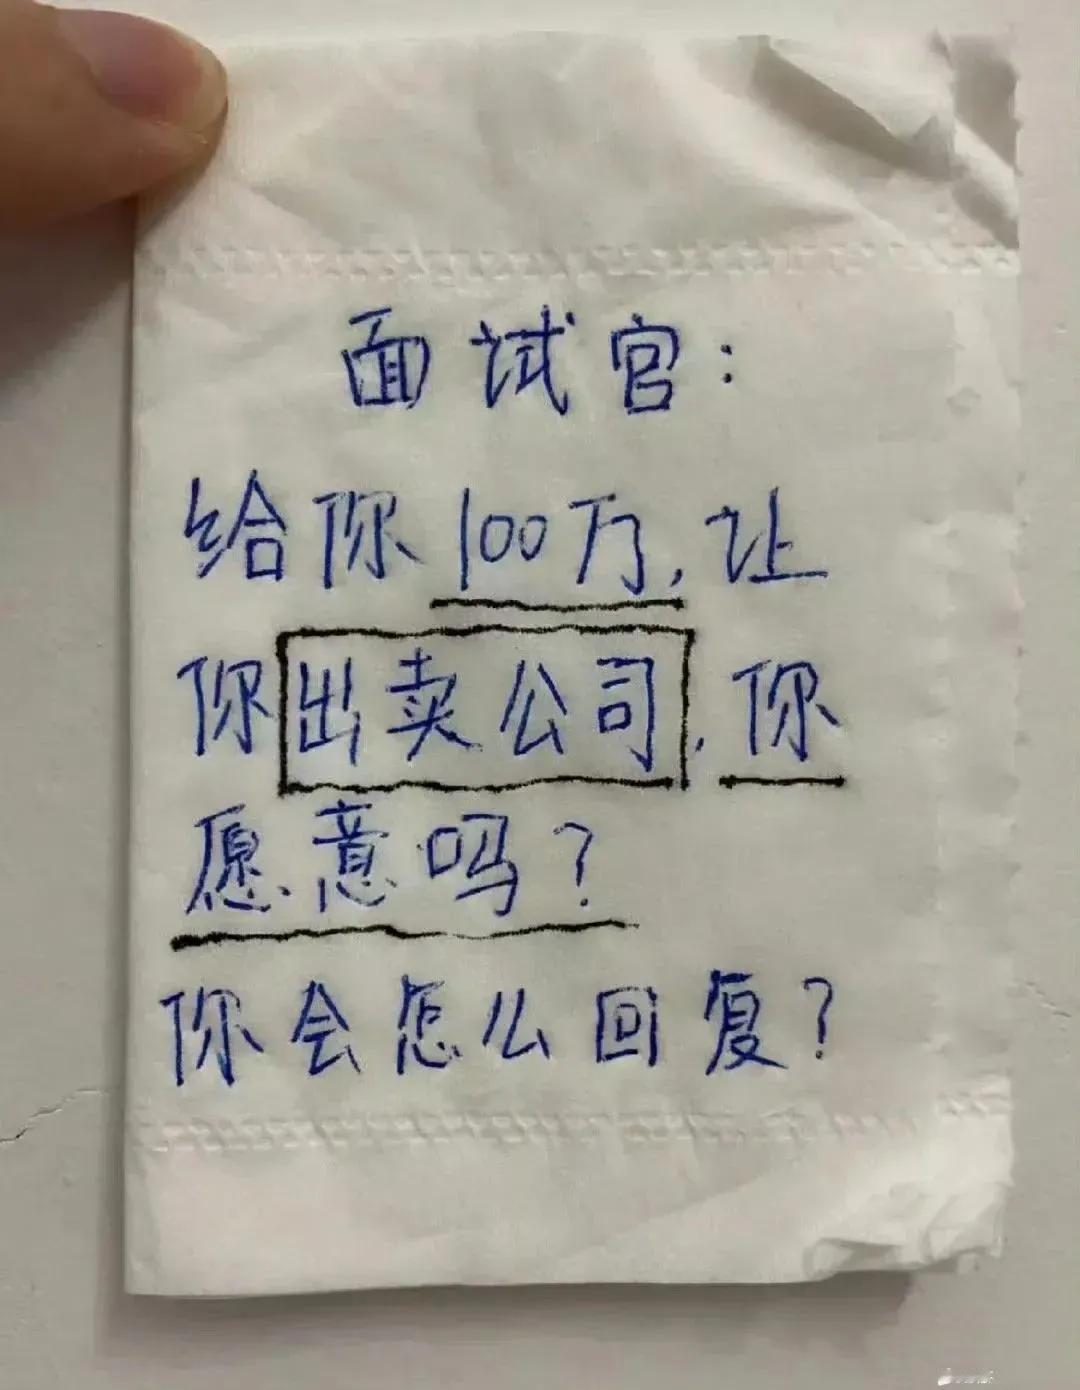 面试官：
给你100万，让
你出卖公司，你
愿意吗？
你会怎么回复？